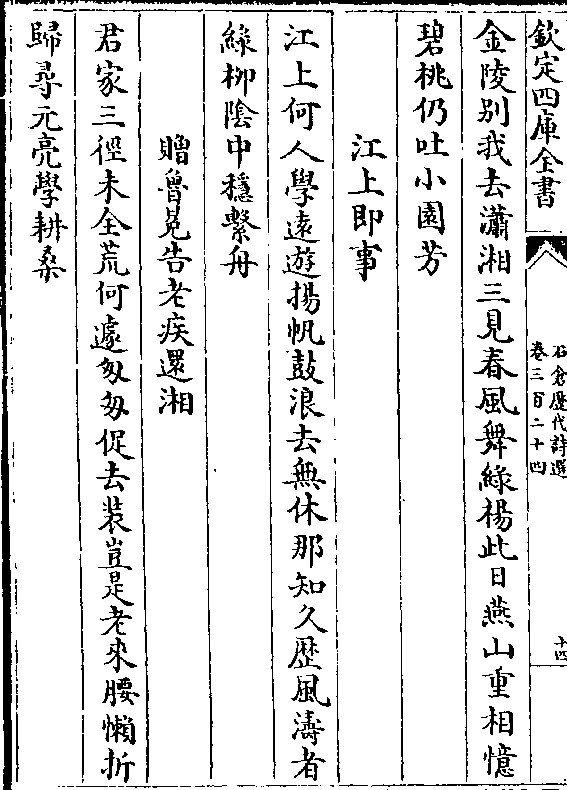 欽定四庫全書
石倉歷代詩選
卷三百二十四
十四
金陵別我去瀟湘三見春風舞綠楊此日燕山重相憶
碧桃仍吐小園芳
江上即事
江上何人學遠遊揚帆鼓浪去無休那知久歴風濤者
綠柳陰中穩繫舟
贈魯冕告老疾還湘
君家三徑未全荒何遽匆匆促去装豈是老來腰懶折
歸尋元亮學耕桑